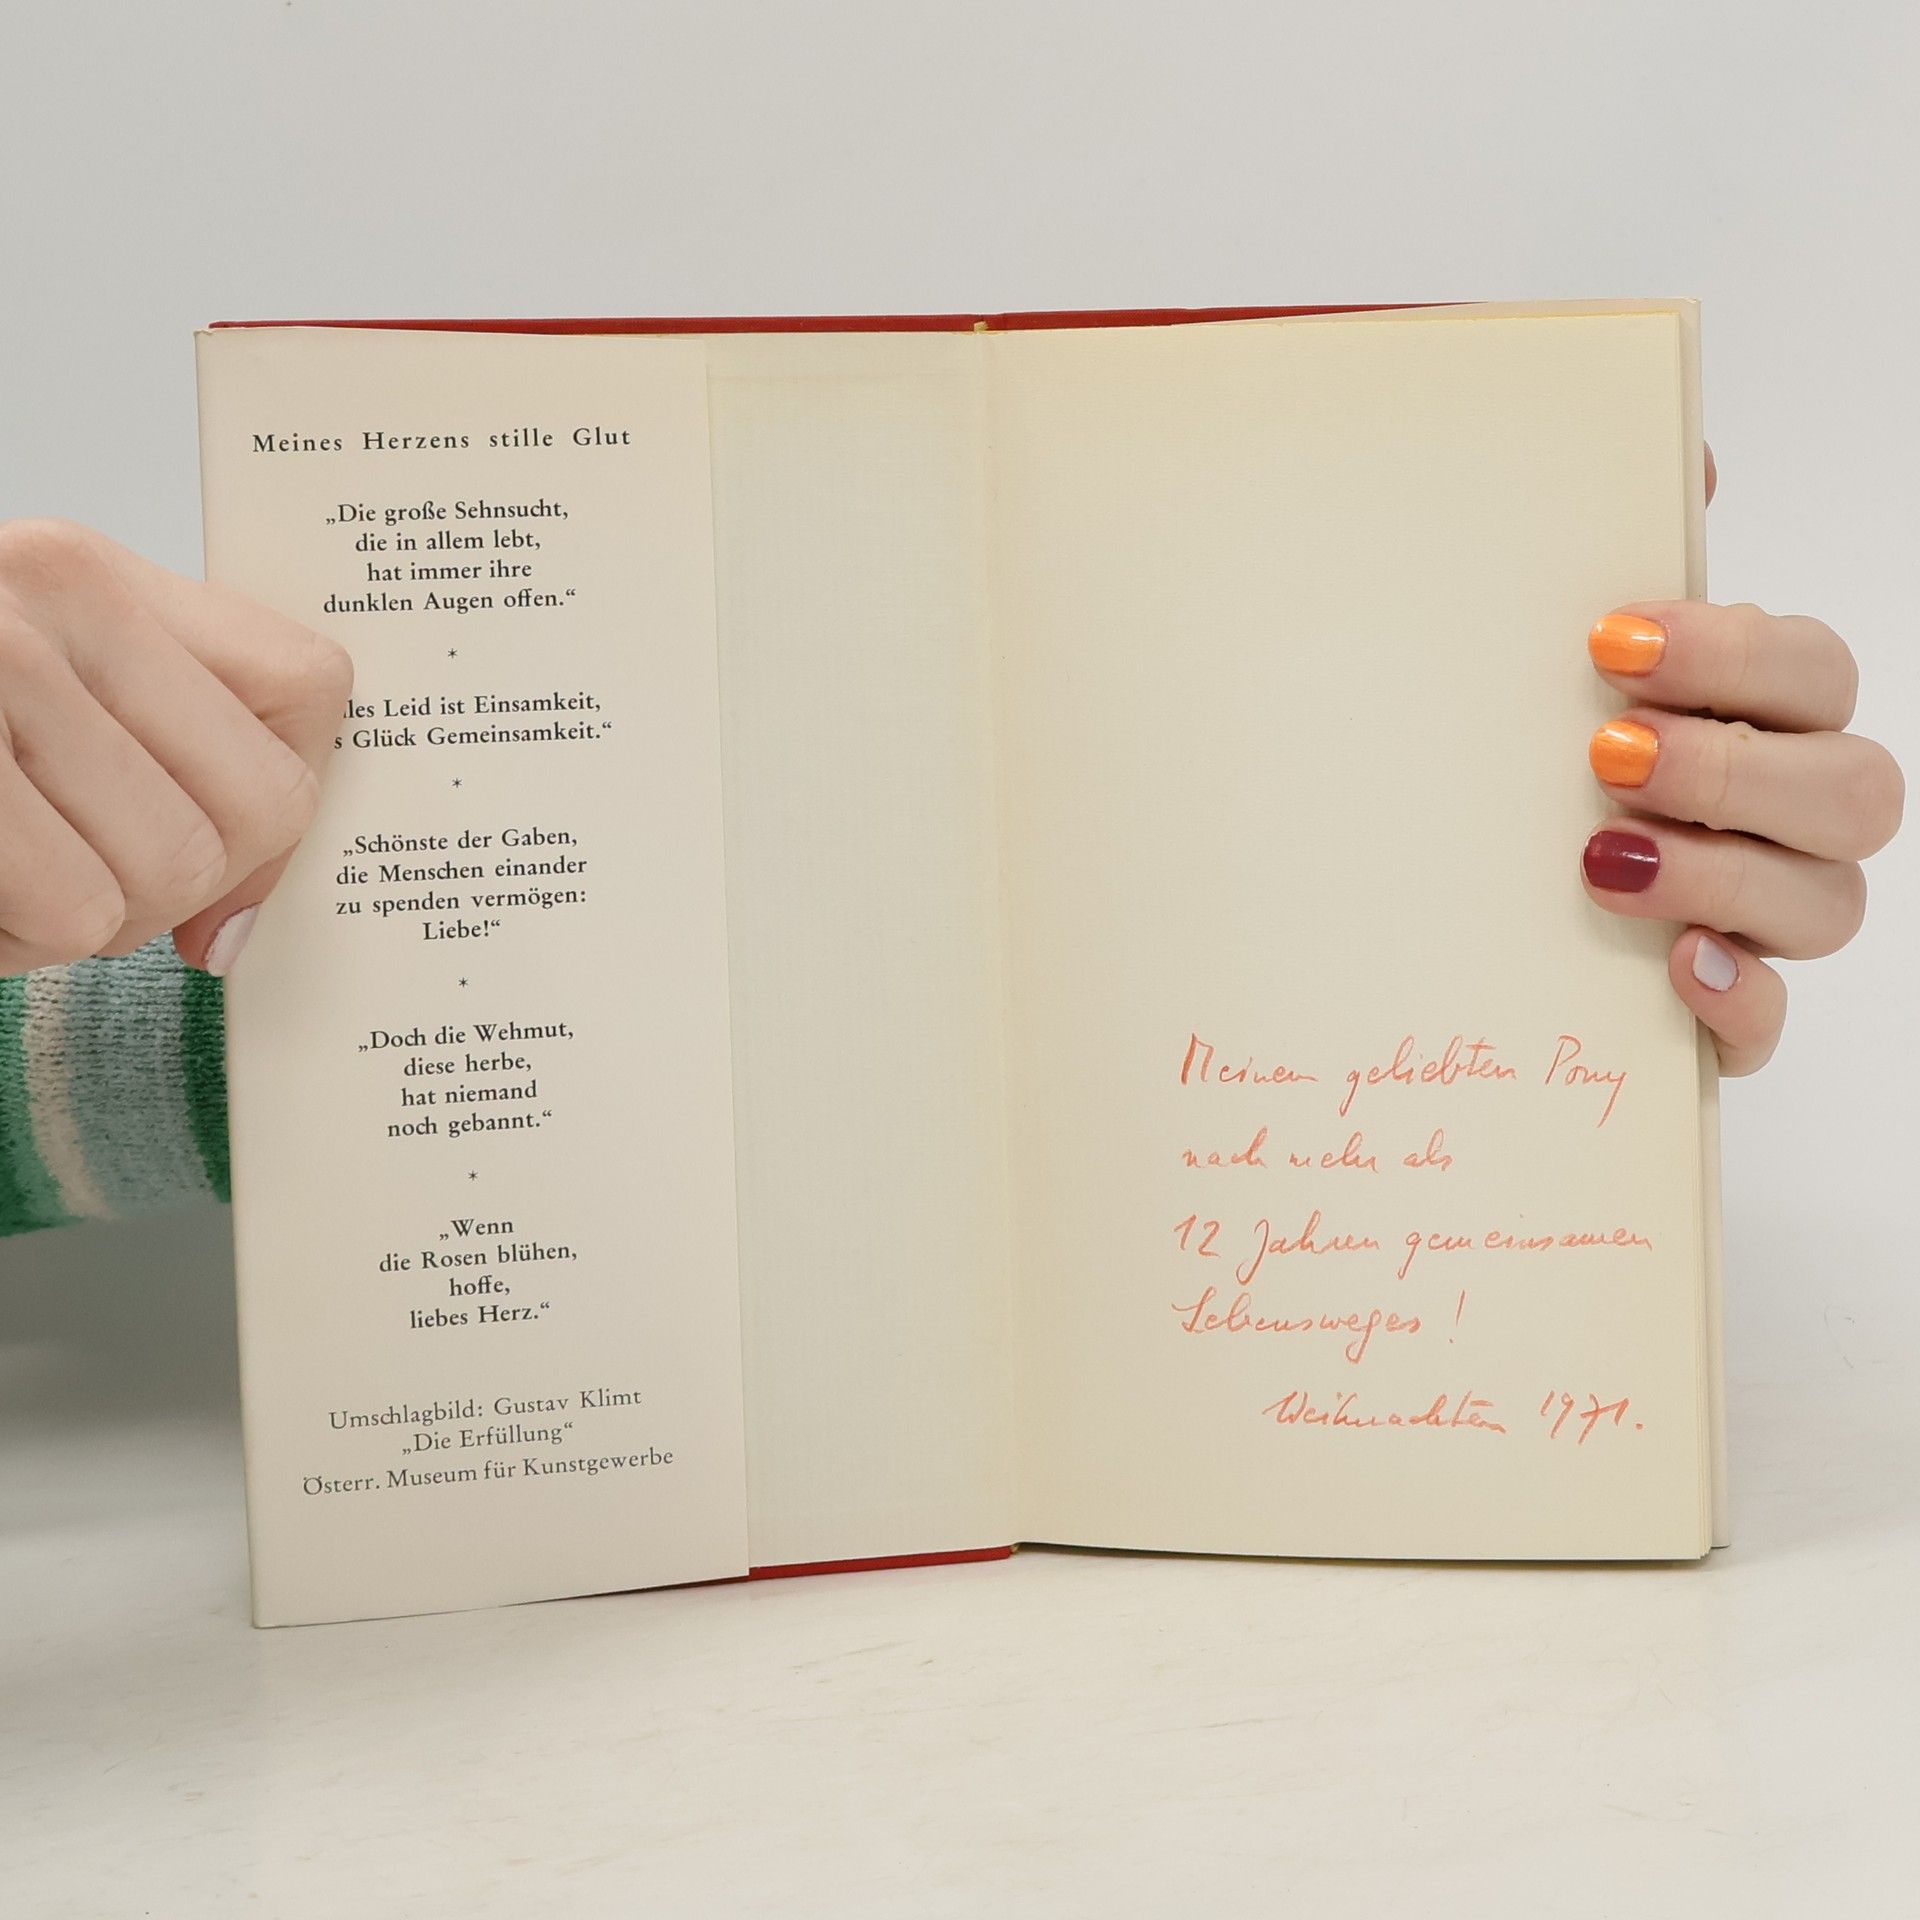 Meines Herzens stille Glut
„Die große Sehnsucht,
die in allem lebt,
hat immer ihre
dunklen Augen offen.“
*
les Leid ist Einsamkeit,
s Glück Gemeinsamkeit.“
*
„Schönste der Gaben,
die Menschen einander
zu spenden vermögen:
Liebe!“
*
„Doch die Wehmut,
diese herbe,
hat niemand
noch gebannt.“
*
„Wenn
die Rosen blühen,
hoffe,
liebes Herz.“
Umschlagbild: Gustav Klimt
„Die Erfüllung“
Österr. Museum für Kunstgewerbe
Meinem geliebten Pony
nach mehr als
12 Jahren gemeinsamen
Lebensweges!
Weihnachten 1971.